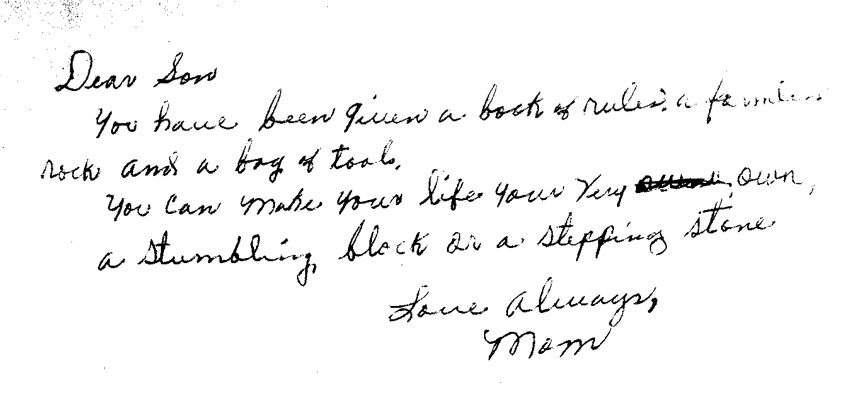 Dear Son
You have been given a book of rules, a
rock and a bag of tools.
You can make your life your very own,
a stumbling block or a stepping stone
Love Always,
Mom